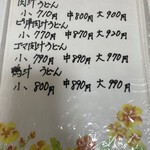 肉汁うどん
小 710円 中800円 大 900円
ピリ辛肉汁うどん
小 770円 中870円 大950円
ゴマ肉汁うどん
小 790円 中890円 大970円
鴨汁うどん
小 800円 中890円 大 990円